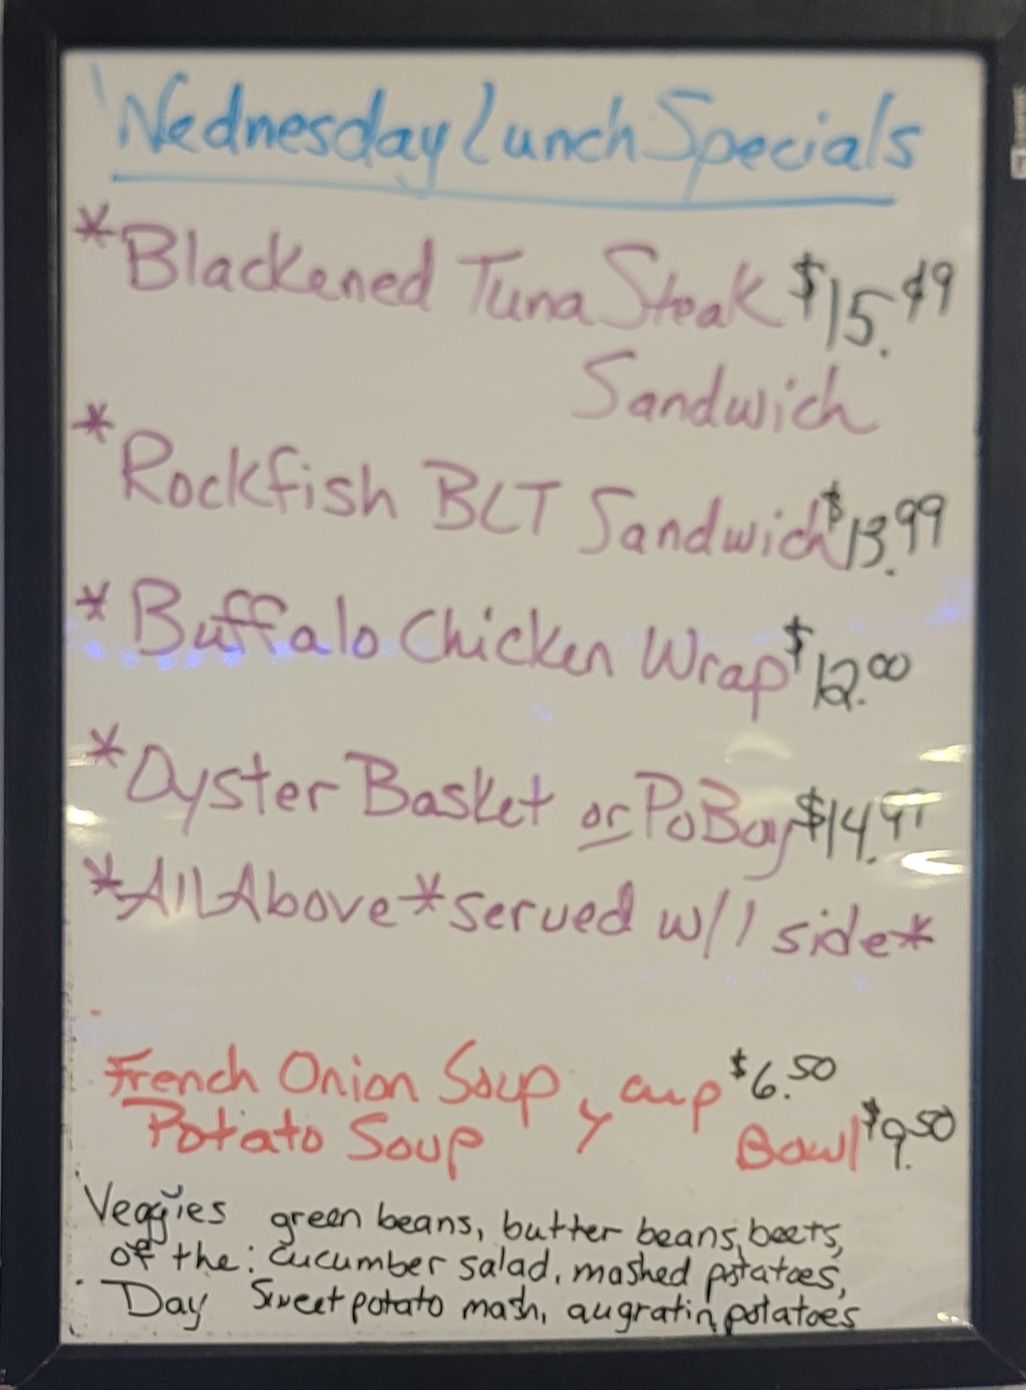 Wednesday Lunch Specials
*Blackened Tuna Steak $15.49
Sandwich
*Rockfish BLT Sandwich $13.99
*Buffalo Chicken Wrap $12.00
*Oyster Basket or PoBoy $14.99
*All Above* served w/1 side*
French Onion Soup, cup $6.50
Potato Soup Bowl $9.50
Veggies green beans, butter beans, beets,
of the: cucumber salad, mashed potatoes,
Day Sweet potato mash, augratin potatoes